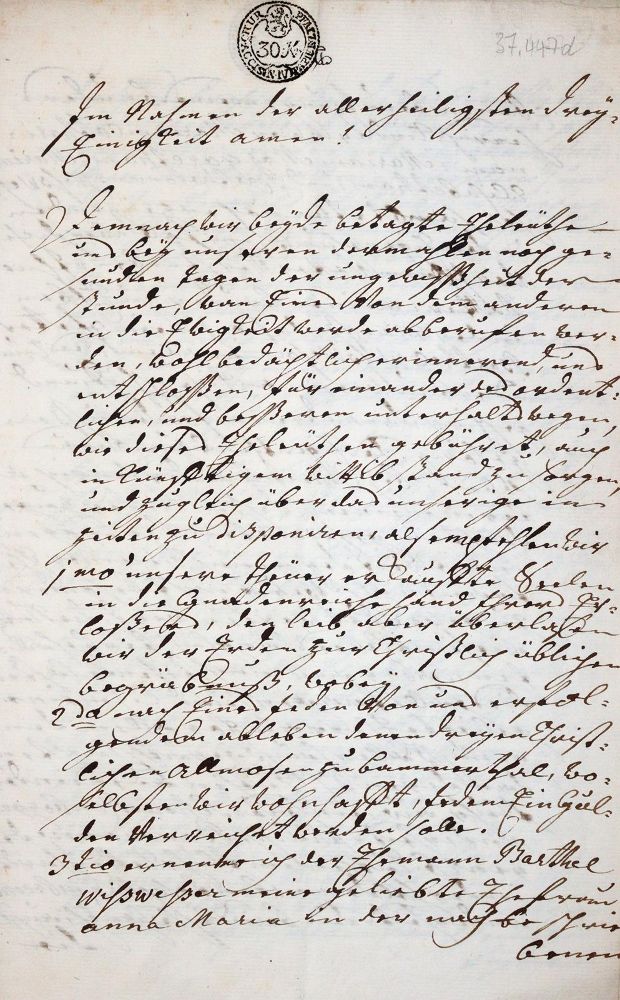 CHUR PFALZ
30 K
37.447d
Im Nahmen der allerheiligsten drey-
Einigkeit amen!
Demnach wir beyde betagte Eheleüthe
uns bey unseren dermahlen noch ge-
sunden tagen der ungewißheit der
stunde, wan Eines Von dem anderen
in die Ewigkeit werde abberufen wer-
den, wohlbedächtlich erinnerend, uns
entschloßen, für einander des ordent-
lichen, und beßeren unterhalts wegen,
wie dieses Eheleüthen gebühret, auch
in Künfftigem Wittibstand zu sorgen,
und zugleich über das unserige in
zeiten zu disponiren, als empfehlen wir
1mo unsere theüer erkauffte Seelen
in die Gnadenreiche hand Ihres Er-
lößers, den leib aber überlaßen
wir der Erden zur Christlich üblichen
begräbnuß, wobey
2do nach Eines Jeden Von uns erfol-
gendem ableben denen dreyen Christ-
lichen Allmosen zu bammerthal, wo-
selbsten wir wohnhafft, Jedem Ein Gul-
den Verreicht werden solle.
3tio ernenne ich der Ehemann Barthel
Wißweßer meine geliebte Ehefrau
anna Maria in der nachbeschrie
benen